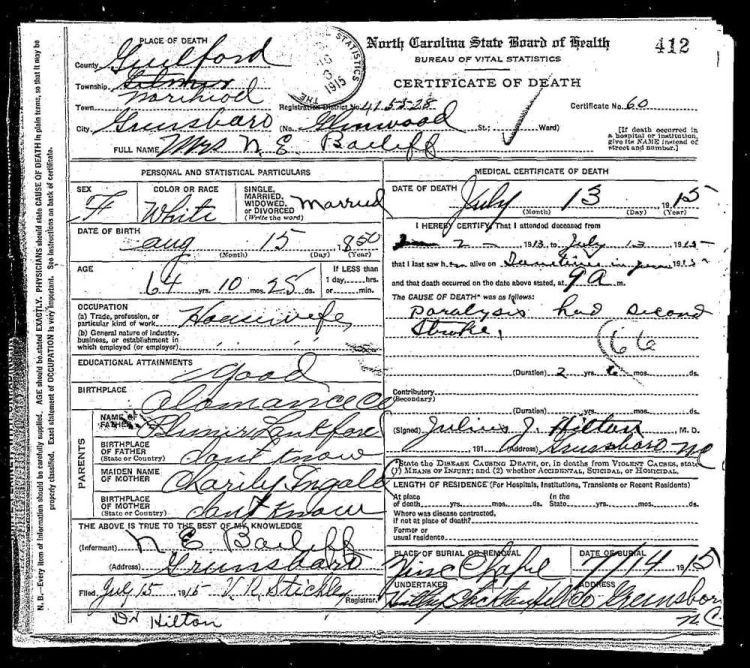 PLACE OF DEATH
County Guilford
Township Gilmer
Town
City Grunsboro
North Carolina State Board of Health
412
BUREAU OF VITAL STATISTICS
CERTIFICATE OF DEATH
STATISTICS
1915
THE
Registration District No. 4155-28
Certificate No. 60
(No. Glinwood St.; Ward)
[If death occurred in a hospital or institution, give its NAME instead of street and number.]
FULL NAME Mrs N. E. Bailiff
PERSONAL AND STATISTICAL PARTICULARS
SEX F
COLOR OR RACE White
SINGLE, MARRIED, WIDOWED, or DIVORCED (Write the word) Married
DATE OF BIRTH
aug 15 1850
(Month) (Day) (Year)
AGE
64 yrs. 10 mos. 25 ds.
If LESS than 1 day,....hrs. or....min.
OCCUPATION
(a) Trade, profession, or particular kind of work Housewife
(b) General nature of industry, business, or establishment in which employed (or employer)
EDUCATIONAL ATTAINMENTS good
BIRTHPLACE
PARENTS
NAME OF FATHER
BIRTHPLACE OF FATHER (State or Country) dont know
MAIDEN NAME OF MOTHER
BIRTHPLACE OF MOTHER (State or Country) dont know
THE ABOVE IS TRUE TO THE BEST OF MY KNOWLEDGE
(Informant) N E Bailiff
(Address) Grunsboro
Filed July 15 1915 V. R. Stickley Registrar
Dr Hilton
MEDICAL CERTIFICATE OF DEATH
DATE OF DEATH
July 13 1915
(Month) (Day) (Year)
I HEREBY CERTIFY, That I attended deceased from
2 1913 to July 13 1915
that I last saw h alive on 1915
and that death occurred on the date above stated, at 9 a m.
The CAUSE OF DEATH* was as follows:
paralysis had second
stroke,
66
(Duration) 2 yrs. 6 mos. ds.
Contributory (Secondary)
(Duration) yrs. mos. ds.
(Signed) Julius J. Hilton, M. D.
191 (Address) Grunsboro NC
*State the DISEASE CAUSING DEATH, or, in deaths from VIOLENT CAUSES, state (1) MEANS OF INJURY; and (2) whether ACCIDENTAL, SUICIDAL, or HOMICIDAL.
LENGTH OF RESIDENCE (For Hospitals, Institutions, Transients or Recent Residents)
At place of death yrs. mos. ds. In the State yrs. mos. ds.
Where was disease contracted, if not at place of death?
Former or usual residence
PLACE OF BURIAL OR REMOVAL
DATE OF BURIAL
7/14 1915
UNDERTAKER
ADDRESS
Greinsboro
N.C.
N. B.—Every item of information should be carefully supplied. AGE should be stated EXACTLY. PHYSICIANS should state CAUSE OF DEATH in plain terms, so that it may be
properly classified. Exact statement of OCCUPATION is very important. See instructions on back of certificate.